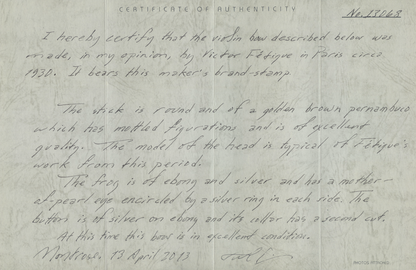 CERTIFICATE OF AUTHENTICITY
No. 13068
I hereby certify that the violin bow described below was
made, in my opinion, by Victor Fétique in Paris circa
1930. It bears this maker's brand-stamp
The stick is round and of a golden brown pernambuco
which has mottled figurations and is of excellent
quality. The model of the head is typical of Fétique's
work from this period.
The frog is of ebony and silver and has a mother-
of-pearl eye encircled by a silver ring in each side. The
button is of silver on ebony and its collar has a second cut.
At this time this bow is in excellent condition.
13 April 2013